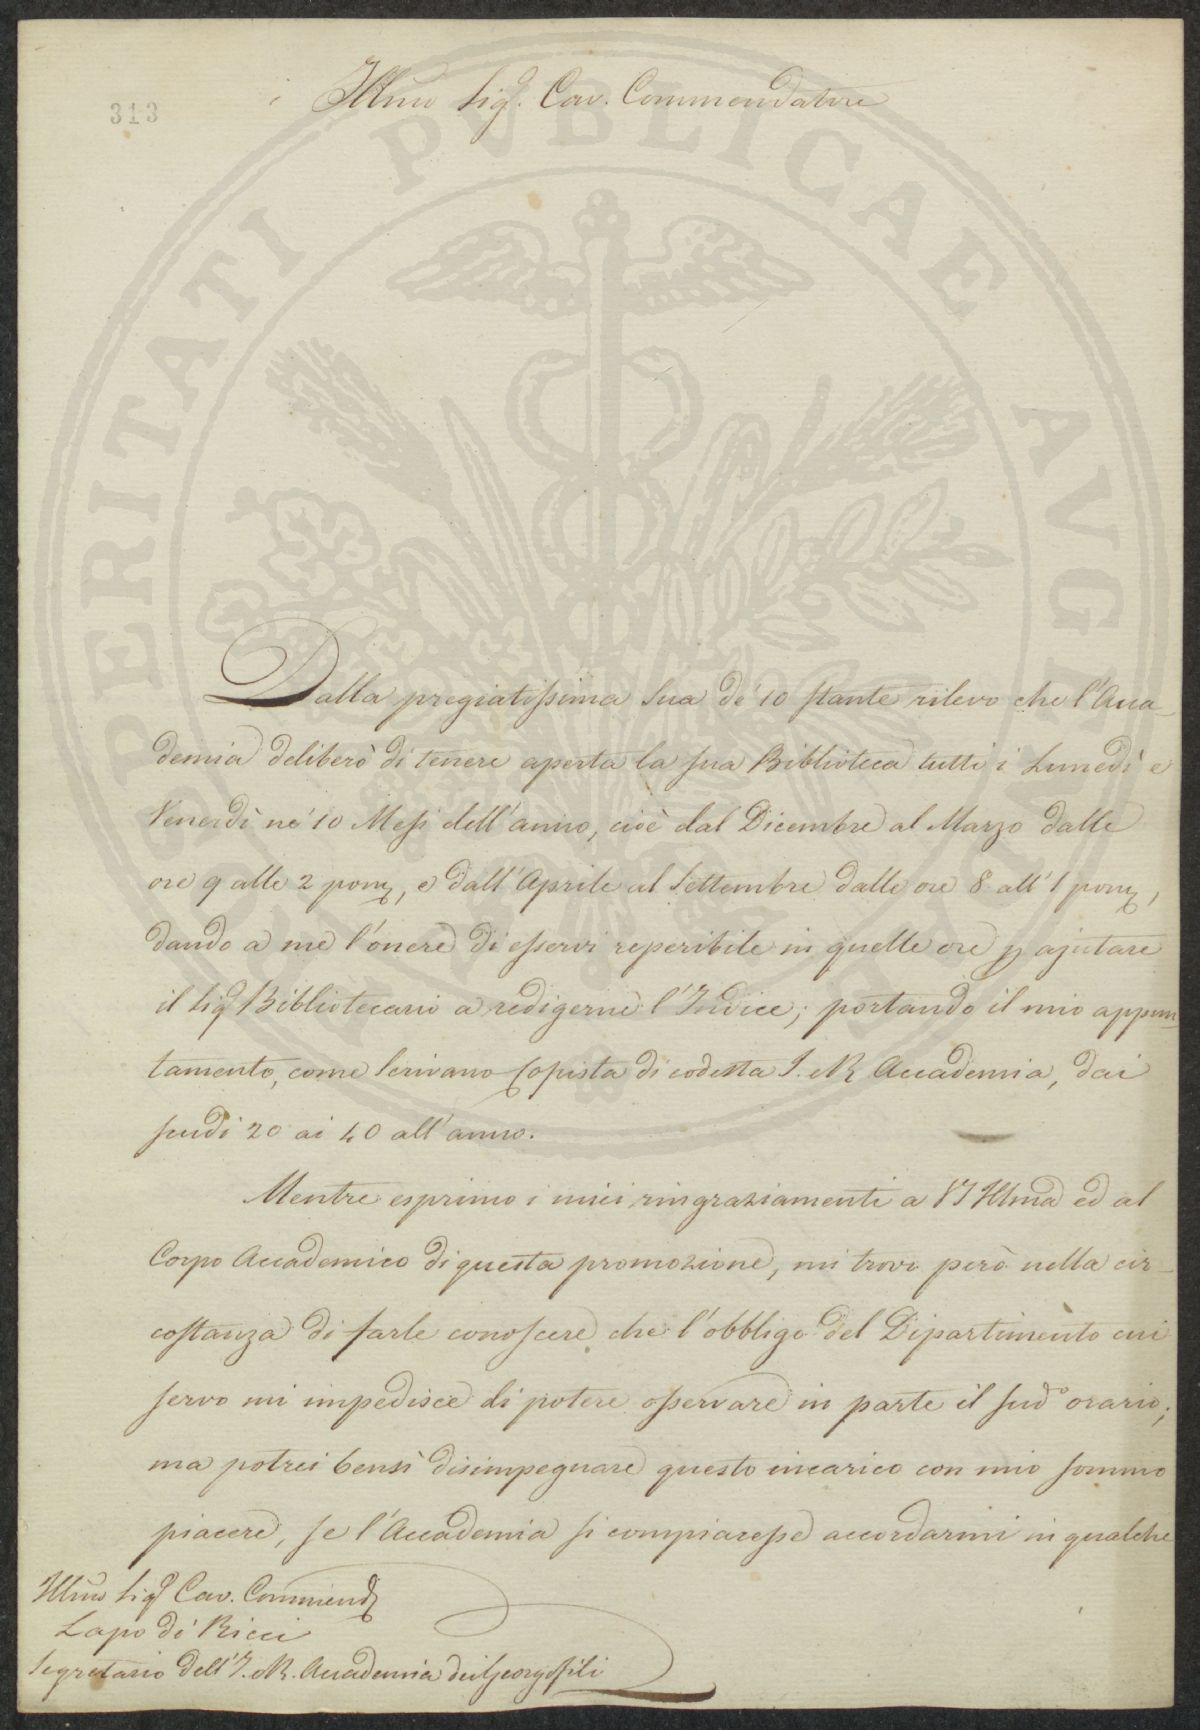 313
Illmo Sigr. Cav. Commendatore
Dalla pregiatissima Sua de' 10 stante rilevo che l'Acca-
demia deliberò di tenere aperta la sua Biblioteca tutti i Lunedì e
Venerdì ne' 10 Mesi dell'anno, cioè dal Dicembre al Marzo dalle
ore 9 alle 2 pom, e dall'Aprile al Settembre dalle ore 8 all'1 pom,
dando a me l'onere di esservi reperibile in quelle ore p ajutare
il Sigr Bibliotecario a redigerne l'Indice; portando il mio appun-
tamento, come Scrivano Copista di codesta I. e R. Accademia, dai
scudi 20 ai 40 all'anno.
Mentre esprimo i miei ringraziamenti a VS Illma ed al
Corpo Accademico di questa promozione, mi trovo però nella cir-
costanza di farle conoscere che l'obbligo del Dipartimento cui
servo mi impedisce di potere osservare in parte il sudo orario;
ma potrei bensì disimpegnare questo incarico con mio sommo
piacere, se l'Accademia si compiacesse accordarmi in qualche
Illmo Sigr Cav. Commend
Lapo de' Ricci
Segretario dell'I. e R. Accademia dei Georgofili
PROSPERITATI PVBLICAE AVGENDAE